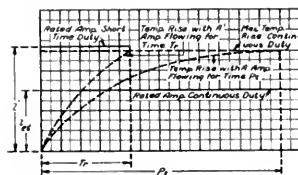 Rated Amp. Short
Time Duty
Temp Rise with A'
Amp Flowing for
Time Tr
Max. Temp.
Rise Contin-
uous Duty
Temp Rise with A Amp
Flowing for Time Ps
Rated Amp Continuous Duty
Tr